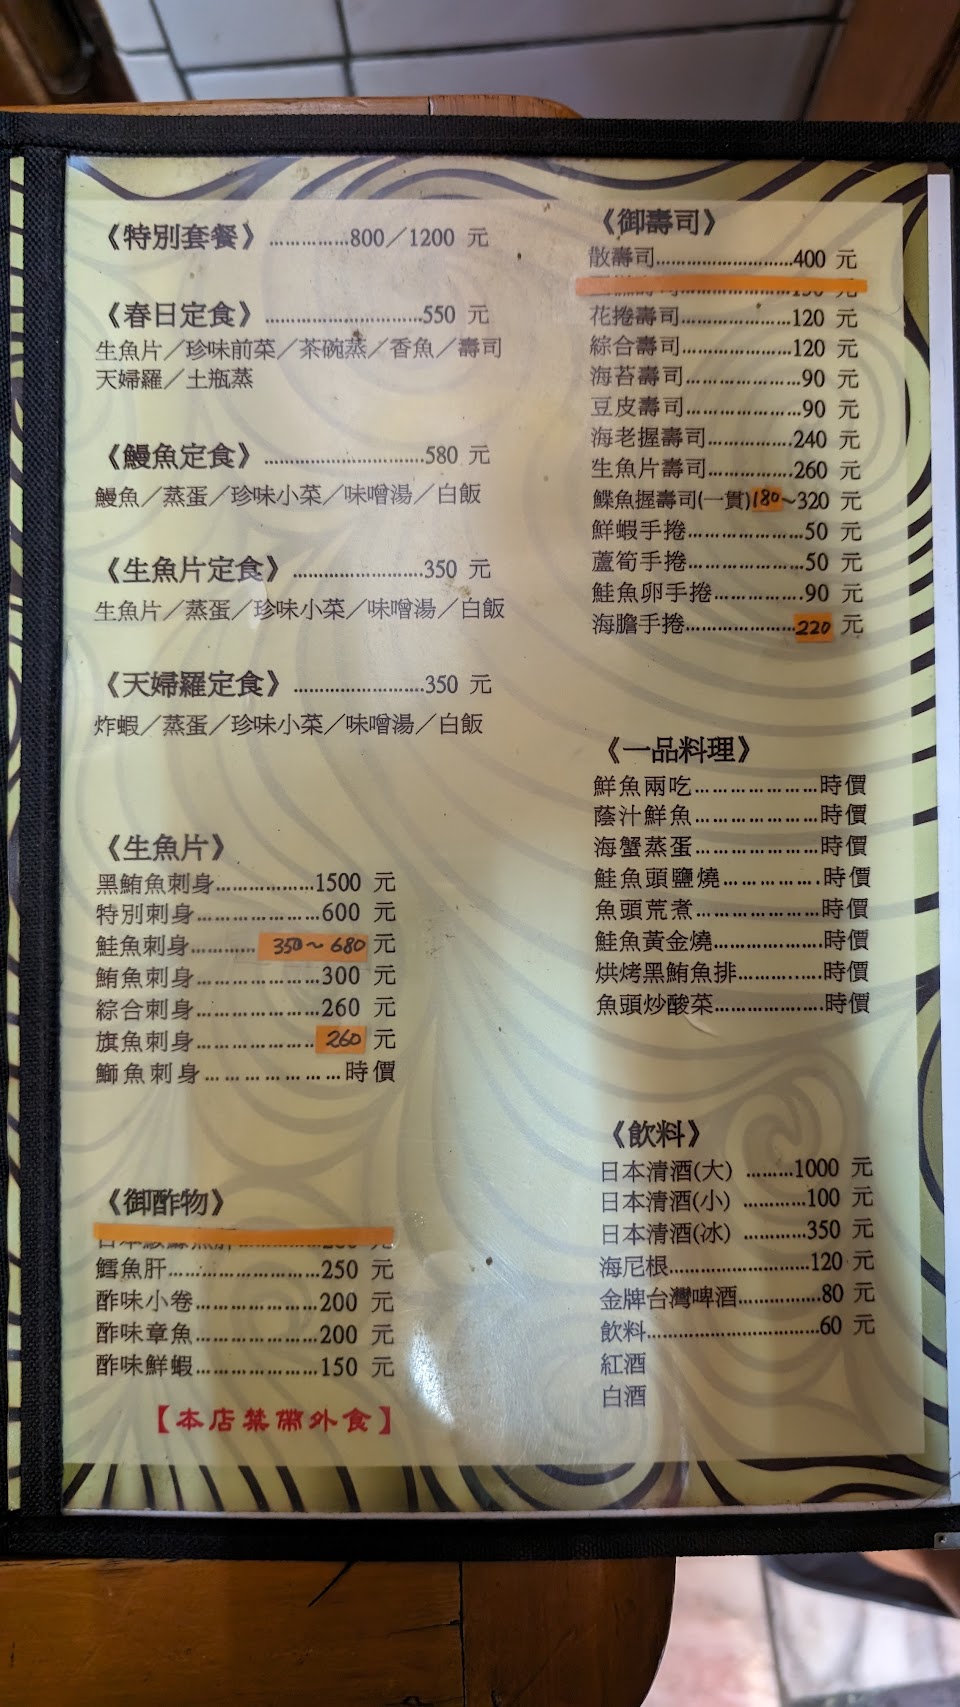 《特別套餐》……………800／1200 元
《春日定食》…………………………550 元
生魚片／珍味前菜／茶碗蒸／香魚／壽司
天婦羅／土瓶蒸
《鰻魚定食》…………………………580 元
鰻魚／蒸蛋／珍味小菜／味噌湯／白飯
《生魚片定食》……………………350 元
生魚片／蒸蛋／珍味小菜／味噌湯／白飯
《天婦羅定食》……………………350 元
炸蝦／蒸蛋／珍味小菜／味噌湯／白飯
《生魚片》
黑鮪魚刺身………………1500 元
特別刺身…………………600 元
鮭魚刺身………350～680元
鮪魚刺身…………………300 元
綜合刺身…………………260 元
旗魚刺身…………………260 元
鰤魚刺身………………時價
《御酢物》
鱈魚肝……………………250 元
酢味小卷…………………200 元
酢味章魚…………………200 元
酢味鮮蝦…………………150 元
【本店禁帶外食】
《御壽司》
散壽司……………………400 元
花捲壽司…………………120 元
綜合壽司…………………120 元
海苔壽司…………………90 元
豆皮壽司…………………90 元
海老握壽司……………240 元
生魚片壽司……………260 元
鰈魚握壽司(一貫)180~320 元
鮮蝦手捲…………………50 元
蘆筍手捲…………………50 元
鮭魚卵手捲……………90 元
海膽手捲…………………220 元
《一品料理》
鮮魚兩吃…………………時價
蔭汁鮮魚…………………時價
海蟹蒸蛋…………………時價
鮭魚頭鹽燒………………時價
魚頭荒煮…………………時價
鮭魚黃金燒………………時價
烘烤黑鮪魚排……………時價
魚頭炒酸菜………………時價
《飲料》
日本清酒(大) ………1000 元
日本清酒(小) …………100 元
日本清酒(冰) …………350 元
海尼根……………………120 元
金牌台灣啤酒……………80 元
飲料………………………60 元
紅酒
白酒